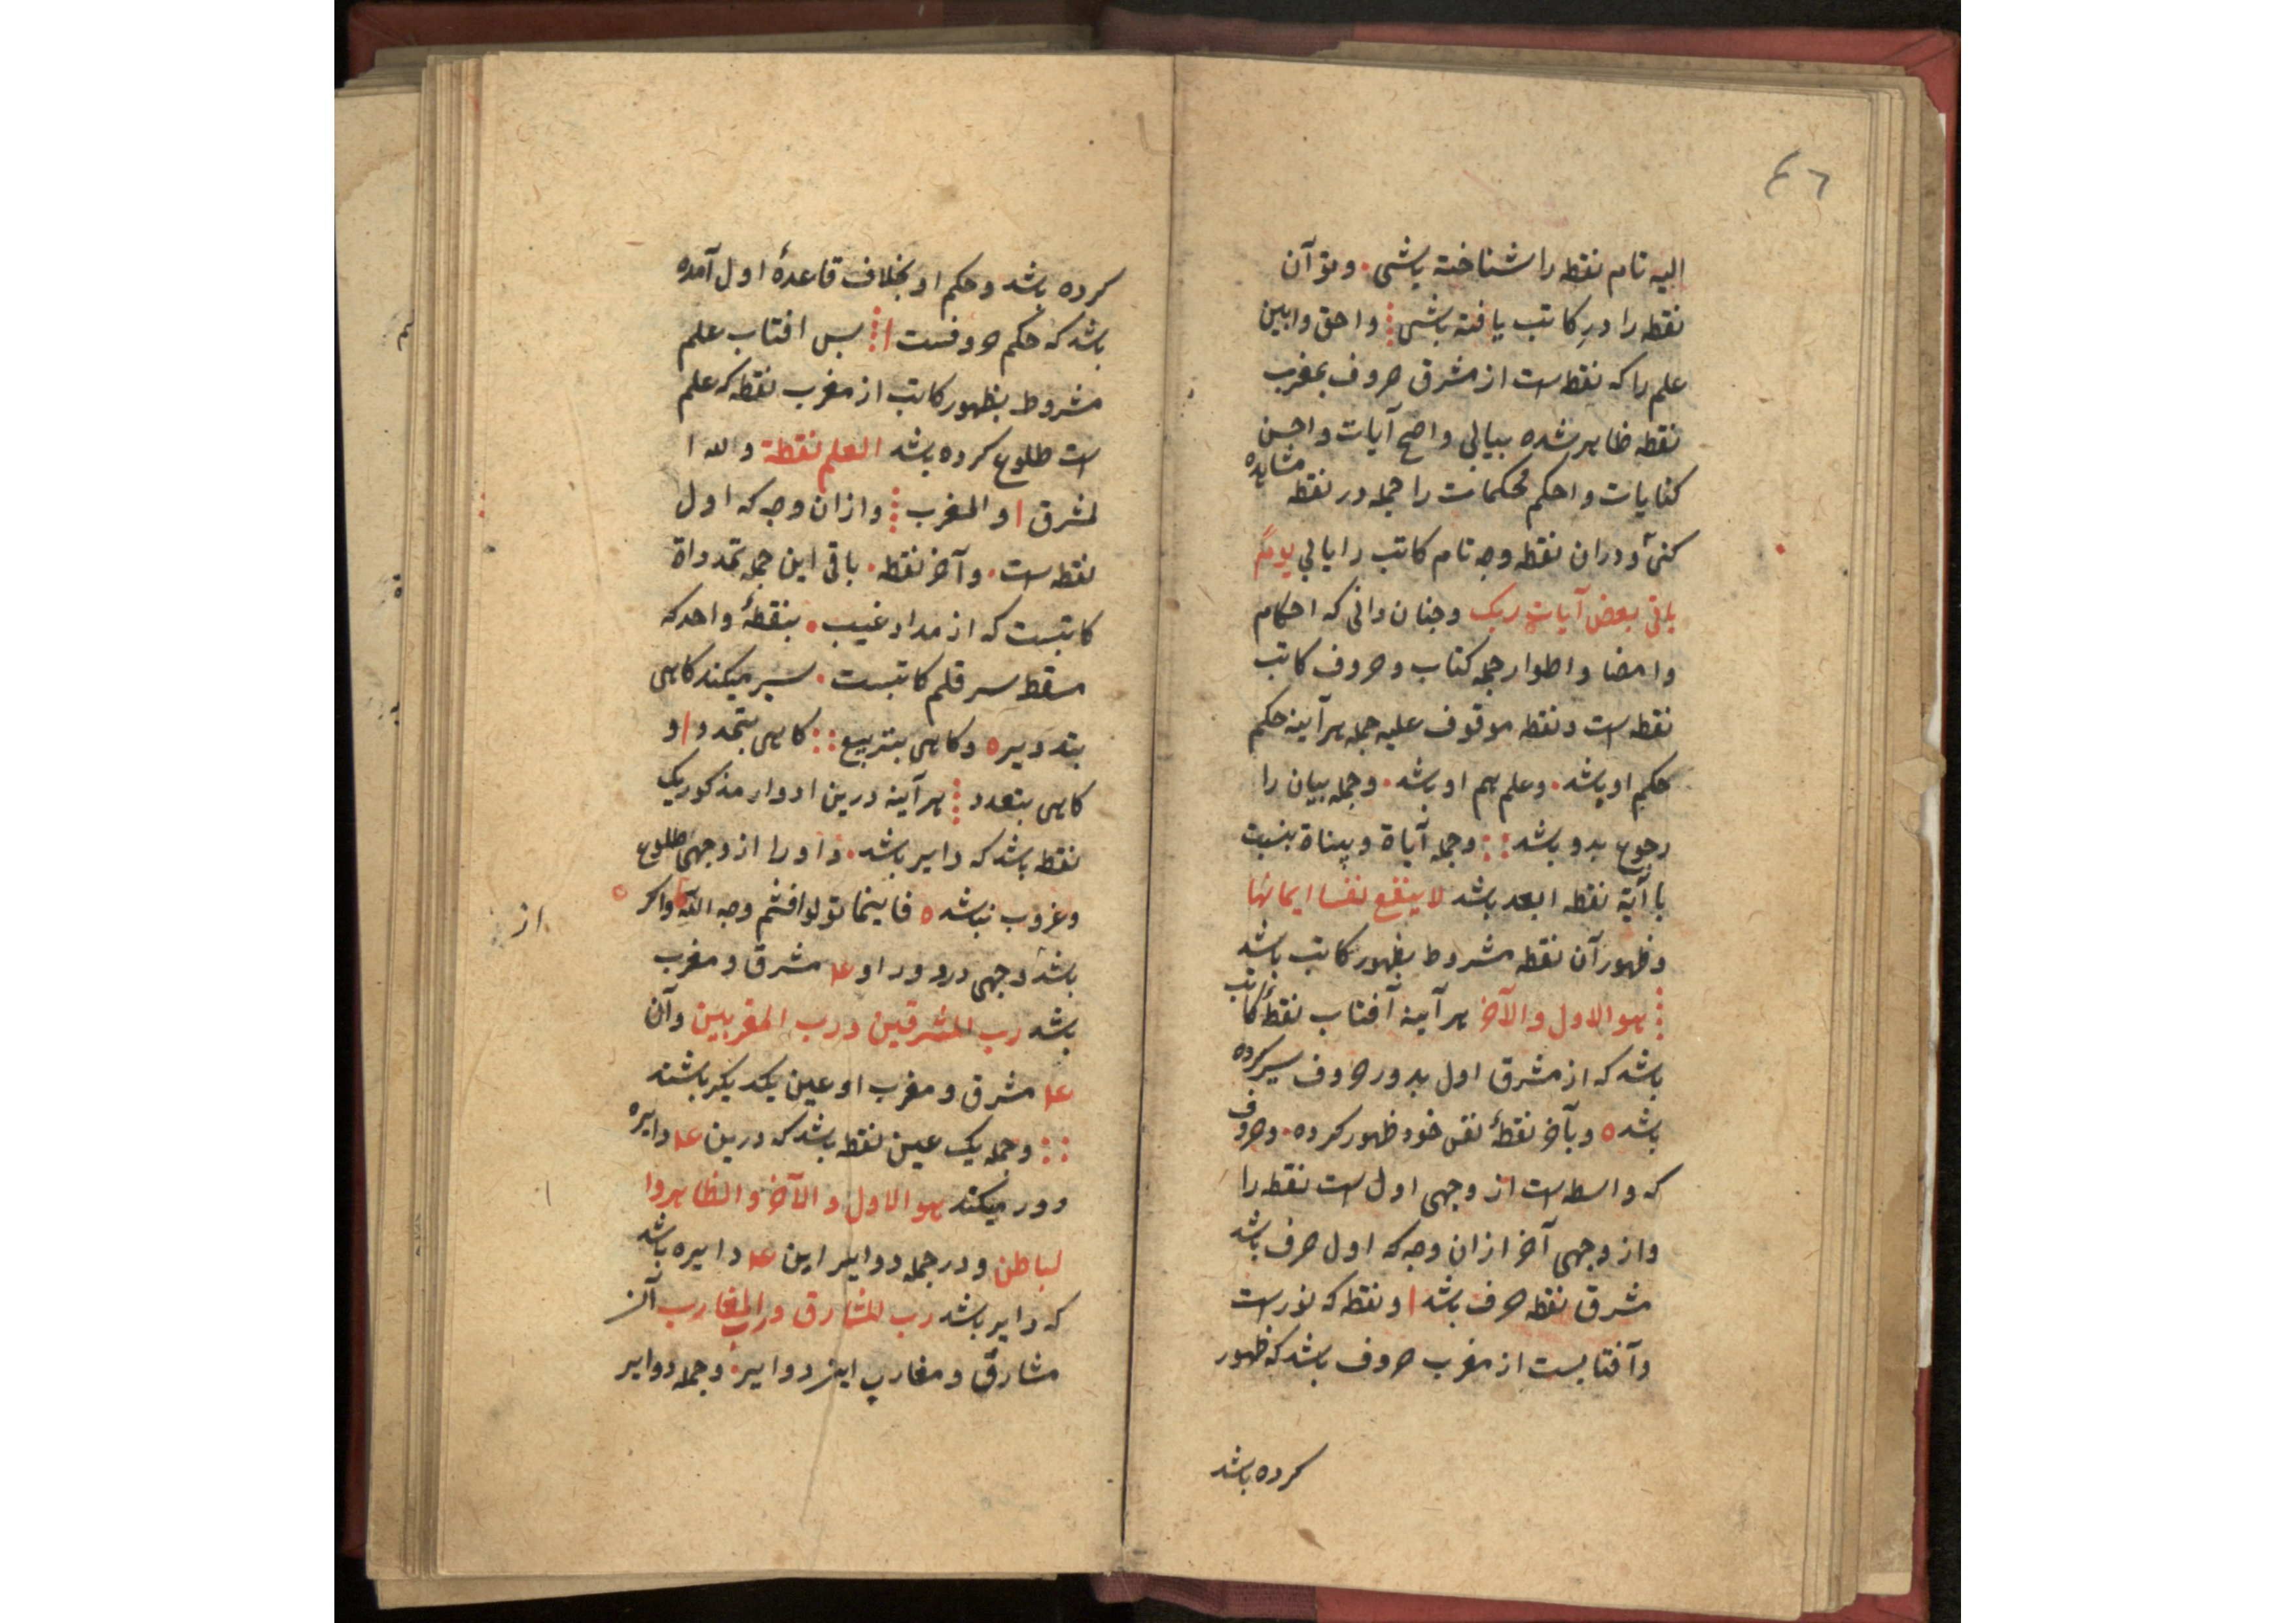 ٤٦
الیه تام نقطه را شناخته باشی . و تو آن
نقطه را در کاتب یافته باشی ⁝ و احق و ابین
علم را که نقطه است از مشرق حروف بمغرب
نقطه ظاهر شده بیابی واضح آیات و احسن
کنایات و احکم محکمات را جمله در نقطه مشاهده
کنی و دران نقطه وجه تام کاتب را یابی یوم
یاتی بعض آیات ربک و چنان دانی که احکام
و امضا و اطوار جمله کتاب و حروف کاتب
نقطه است و نقطه موقوف علیه جمله هرآینه حکم
حکم او باشد . و علم هم او باشد . و جمله بیان را
رجوع بدو باشد :: و جمله آیاة و بیناة بنسبت
با آیة نقطه ابعد باشد لا ینفع نفسا ایمانها
و ظهور آن نقطه مشروط بظهور کاتب باشد
⁝ هو الاول و الآخر هرآینه آفتاب نقطهٔ کاتب
باشد که از مشرق اول بدور حروف سیر کرده
باشد ه و بآخر نقطهٔ نفس خود ظهور کرده . و حروف
که واسطه است از وجهی اول است نقطه را
و از وجهی آخر ازان وجه که اول حرف باشد
مشرق نقطه حرف باشد ا و نقطه که نورست
و آفتابست از مغرب حروف باشد که ظهور
کرده باشد
کرده باشد و حکم او بخلاف قاعدهٔ اول آمده
باشد که حکم حروفست ا ⁝ پس افتاب علم
مشروط بظهور کاتب از مغرب نقطه که علم
است طلوع کرده باشد العلم نقطة و الله ا
لمشرق ا و المغرب ⁝ و ازان وجه که اول
نقطه است . و آخر نقطه . باقی این جمله تمدد واة
کاتبست که از مداد غیب . بنقطهٔ واحد که
مسقط سر قلم کاتبست . سیر میکند کاهی
بتدویر ه و کاهی بتربیع :: کاهی بتحد و ا و
کاهی بتعدد ⁝ هرآینه درین ادوار مذکور یک
نقطه باشد که دایر باشد . و او را از وجهی طلوع
و غروب نباشد ه فاینما تولوا فثم وجه الله و اکر
از
باشد وجهی در دور او عا مشرق و مغرب
باشد رب المشرقین و رب المغربین و آن
عا مشرق و مغرب او عین یکدیکر باشند
:: و جمله یک عین نقطه باشد که درین عا دایره
دور میکند هو الاول و الآخر و الظاهر وا
لباطن و در جمله دوایر این عا دایره باشد
که دایر باشد رب المشارق و رب المغارب آن
مشارق و مغارب این دوایر . و جمله دوایر